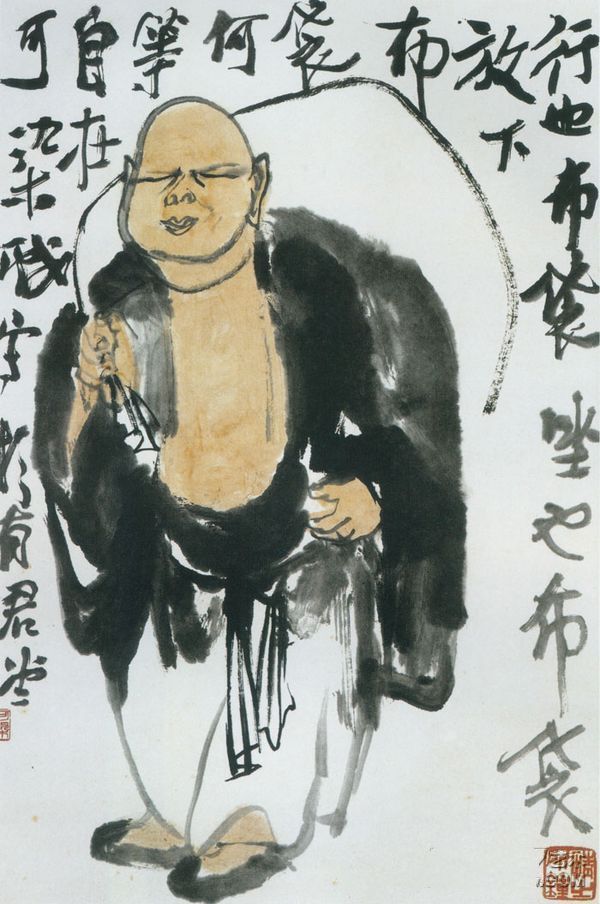 行也布袋坐也布袋
放下
布
袋
何
等
自在
可染戲写於有君堂